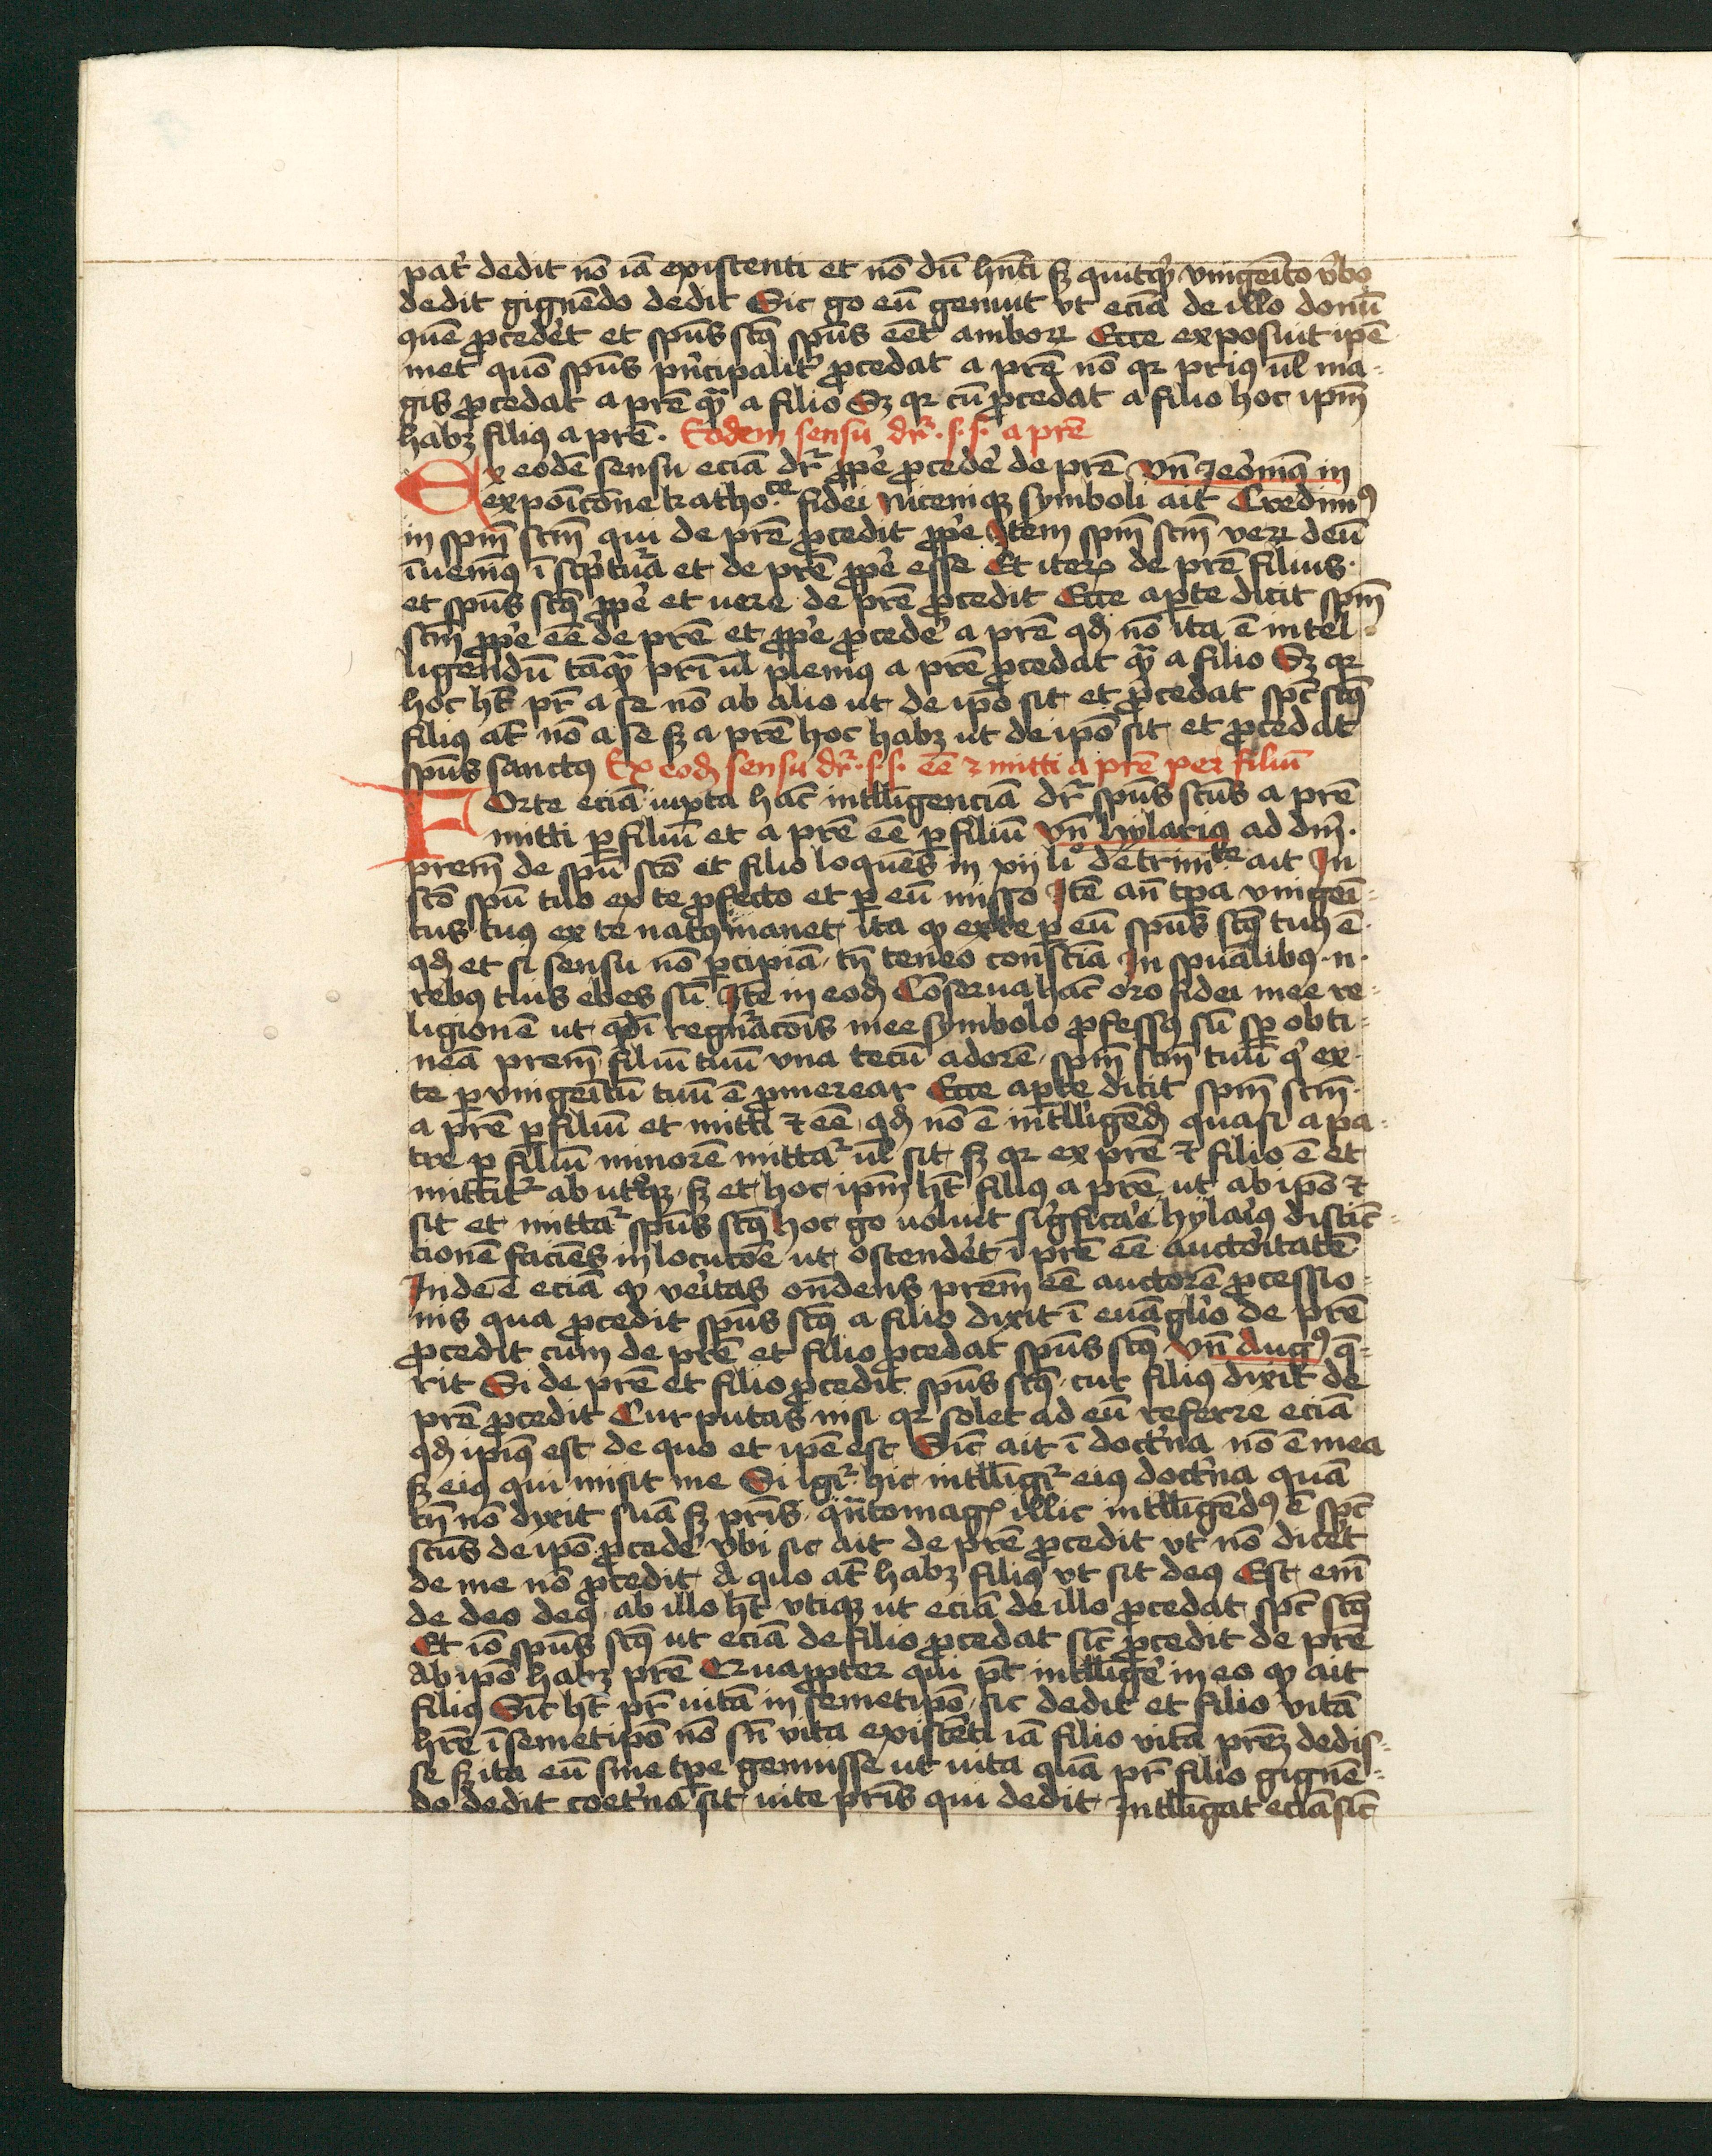 pat̓ dedit nō iā existenti et nō dū hn̄ti sꝫ quitqͥd vnigeīto v̓bo
dedit gignēdo dedit Sic go eū genuit vt eciā de illo donū
quē ꝓcedet̓ et spūs sctꝰ spūs eēt amboꝝ Ecce exposuit ip̄e
met quō spūs pͥncipalit̓ ꝓcedat a pr̄e nō qꝛ priꝰ ul̄ ma-
gis ꝓcedat a pr̄e qͣꝫ a filio Sꝫ qꝛ cū ꝓcedat a filio hoc ip̄m
habꝫ filiꝰ a pr̄e. Eodem sensu dr̄ .s.s. a pr̄e
Ex eodē sensu eciā dr̄ ꝓpe̓ ꝓcede̓ de pr̄e vn̄ Jeo̓nimꝰ in
expoīcōne katho.ce fidei Niceniqꝫ symboli ait Credimꝰ
in spm̄ scm̄ qui de pr̄e ꝓcedit ꝓpe̓ Item spm̄ scm̄ veꝝ deū
īuenimꝰ ī scpͥtura et de pr̄e ꝓpe̓ esse Et iteꝝ de pr̄e filius.
et spūs sctꝰ ꝓpe̓ et uere de pr̄e ꝓcedit Ecce aꝑte dicit spm̄
scm̄ ꝓpe̓ eē de pr̄e et ꝓpe̓ ꝓcede̓ a pr̄e qd̄ nō ita ē intel-
ligendū tāqͣꝫ pri̓ ul̄ pleniꝰ a pr̄e ꝓcedat qͣꝫ a filio Sꝫ qꝛ
hoc ht̄ pr̄ a se nō ab alio ut de ipō sit et ꝓcedat spc̄ sctꝰ
filiꝰ at̄ nō a se sꝫ a pr̄e hoc habꝫ ut de ipō sit et ꝓcedat
spūs sanctꝰ Ex eod̄ sensu dr̄ .s.s. eē ⁊ mitti a pr̄e per filiū
Forte eciā iuxta hāc intll̄igenciā dr̄ spūs scūs a pr̄e
mitti ꝑ filiū et a pr̄e eē ꝑ filiū vn̄ hylariꝰ ad dm̄.
prem̄ de spū scō et filio loquēs in xij li° de trinite ait In
scō spū tuo ex te ꝓfecto et ꝑ eū misso Itē an̄ tꝑa vnigeī-
tus tuꝰ ex te natꝰ manet ita qꝫ ex te ꝑ eū spūs sctꝰ tuꝰ ē.
qd̄ et si sensu nō ꝑcipiā tn̄ teneo consc̄iā In spūalibꝰ .n.
rebꝰ tuis ebes sū Itē in eod̄ Cōserua hāc oro fidei mee re-
ligionē ut qd̄ ī regn̓acōis mee symbolo ꝓfessꝰ sū sꝑ obti-
neā prem̄ filiū tuū vna tecū adorē spm̄ scm̄ tuū qͥ ex
te ꝑ vnigeītū tuū ē ꝓmerear Ecce aꝑte dicit spm̄ scm̄.
a pr̄e ꝑ filiū et mitti ⁊ eē qd̄ nō ē intll̄igēd̄ quasi a pa-
tre ꝑ filiū minorē mittaᷣ ul̄ sit sꝫ qꝛ ex pr̄e ⁊ filio ē et
mittitᷣ ab ut̓qꝫ sꝫ et hoc ip̄m ht̄ filiꝰ a pr̄e ut ab ipō ⁊
sit et mittaᷣ spūs sctꝰ hoc go uoluit sigͥfica̓e hylai̓ꝰ distīc-
tionē faciēs in locutōe ut ostendet̓ ī pr̄e eē aucto̓itatē
Inde ē eciā qꝫ ve̓itas on̄dens prem̄ eē auctorē ꝓcessio-
nis qua ꝓcedit spūs sctꝰ a filio dixit ī euāgl̓io de pr̄e
ꝓcedit cum de pr̄e et filio ꝓcedat spūs sctꝰ vn̄ Augꝰ q̄-
rit Si de pr̄e et filio ꝓcedit spūs sctꝰ cur filiꝰ dixit de
pr̄e ꝓcedit Cur putas nisi qꝛ solet ad eū referre eciā
qd̄ ipiꝰ est de quo et ip̄e est Sic̄ ait ī doctͥna nō ē mea
sꝫ eiꝰ qui misit me Si igiᷣ hic intll̄igiᷣ eiꝰ doctͥna quā
tn̄ nō dyxit suā sꝫ pr̄is qn̄tomagꝭ illic intll̄igēdꝰ ē spc̄
scūs de ipō ꝓcede̓ vbi sic ait de pr̄e ꝓcedit vt nō dicet̓
de me nō ꝓcedit A quo at̄ habꝫ filiꝰ vt sit deꝰ Est em̄
de deo deꝰ ab illo ht̄ vtiqꝫ ut eciā de illo ꝓcedat spc̄ sctꝰ
Et iō spūs sctꝰ ut eciā de filio ꝓcedat sic̄ ꝓcedit de pr̄e
Ab ipō habꝫ pr̄e Quaꝓpter qui pt̄ intll̄ige̓ in eo qꝫ ait
filiꝰ Sic̄ ht̄ pr̄ uitā in semetipō sic dedit et filio vitā
hr̄e ī semetipō nō sn̄ vita existēti iā filio vitā pr̄eꝫ dedis-
se sꝫ ita eū sine tꝑe genuisse ut uita quā pr̄ filio gignē-
do dedit coet̓na sit uite pr̄is qui dedit Intll̄igat eciā sic̄